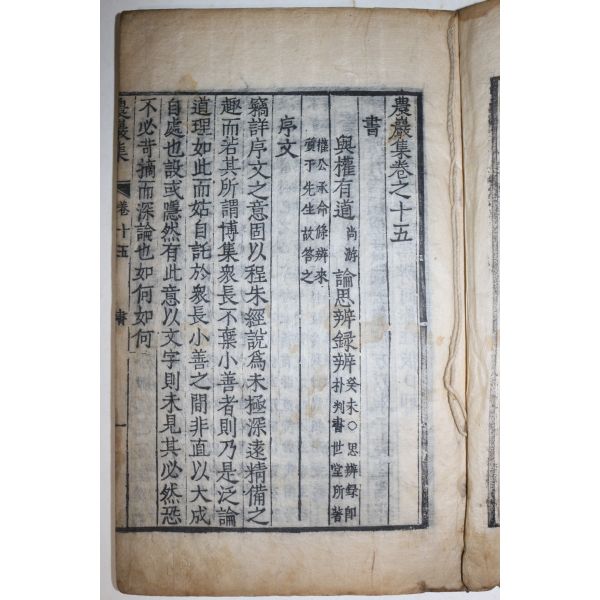 農巖集卷之十五
書
與權有道尚游論思辨録辨癸未○思辨録即朴判書世堂所著
權公承命條辨來質于先生故答之
序文
竊詳序文之意固以程朱經說爲未極深遠精備之
趣而若其所謂博集衆長不棄小善者則乃是泛論
道理如此而姑自託於衆長小善之間非直以大成
自處也設或隱然有此意以文字則未見其必然恐
不必苛摘而深論也如何如何
農巖集 卷十五 書 一